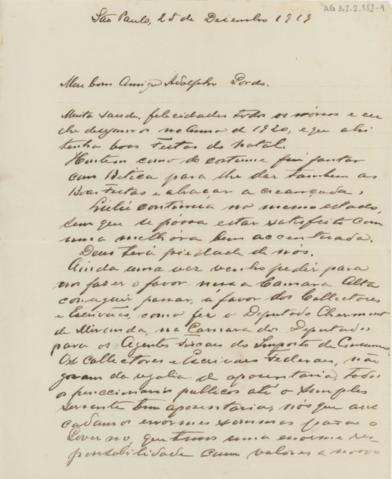 AG 3.2.2.132-1
São Paulo, 25 de Dezembro 1919
Meu bom Amigo Adolpho Gordo.
Muita saude, felicidades todos os nossos e eu
lhe desejamos no anno de 1920, e que ahi
tenha boas festas do Natal.
Hontem como de costume fui jantar
com Betica para lhe dar tambem as
Boas festas e abraçar a creançada.
continua no mesmo estado,
sem que se possa estar satisfeito com
uma melhora bem accentuada.
Deus terá piedade de nós.
Ainda uma vez venho pedir para
nos fazer o favor na Camara Alta
conseguir passar, a favor dos Collectores
e Escrivães, como fez o Deputado Chermont
de Miranda, na Camara dos Deputados
para os Agentes fiscaes do Imposto de Consumo
Os Collectores e Escrivães Federaes, não
gosam da regalia de aposentaria, todos
os funccionarios publicos até o simples
servente tem aposentaria, nós que arre
cadamos enormes sommas para o
Governo, que temos uma enorme res
ponsabilidade com valores a nosso